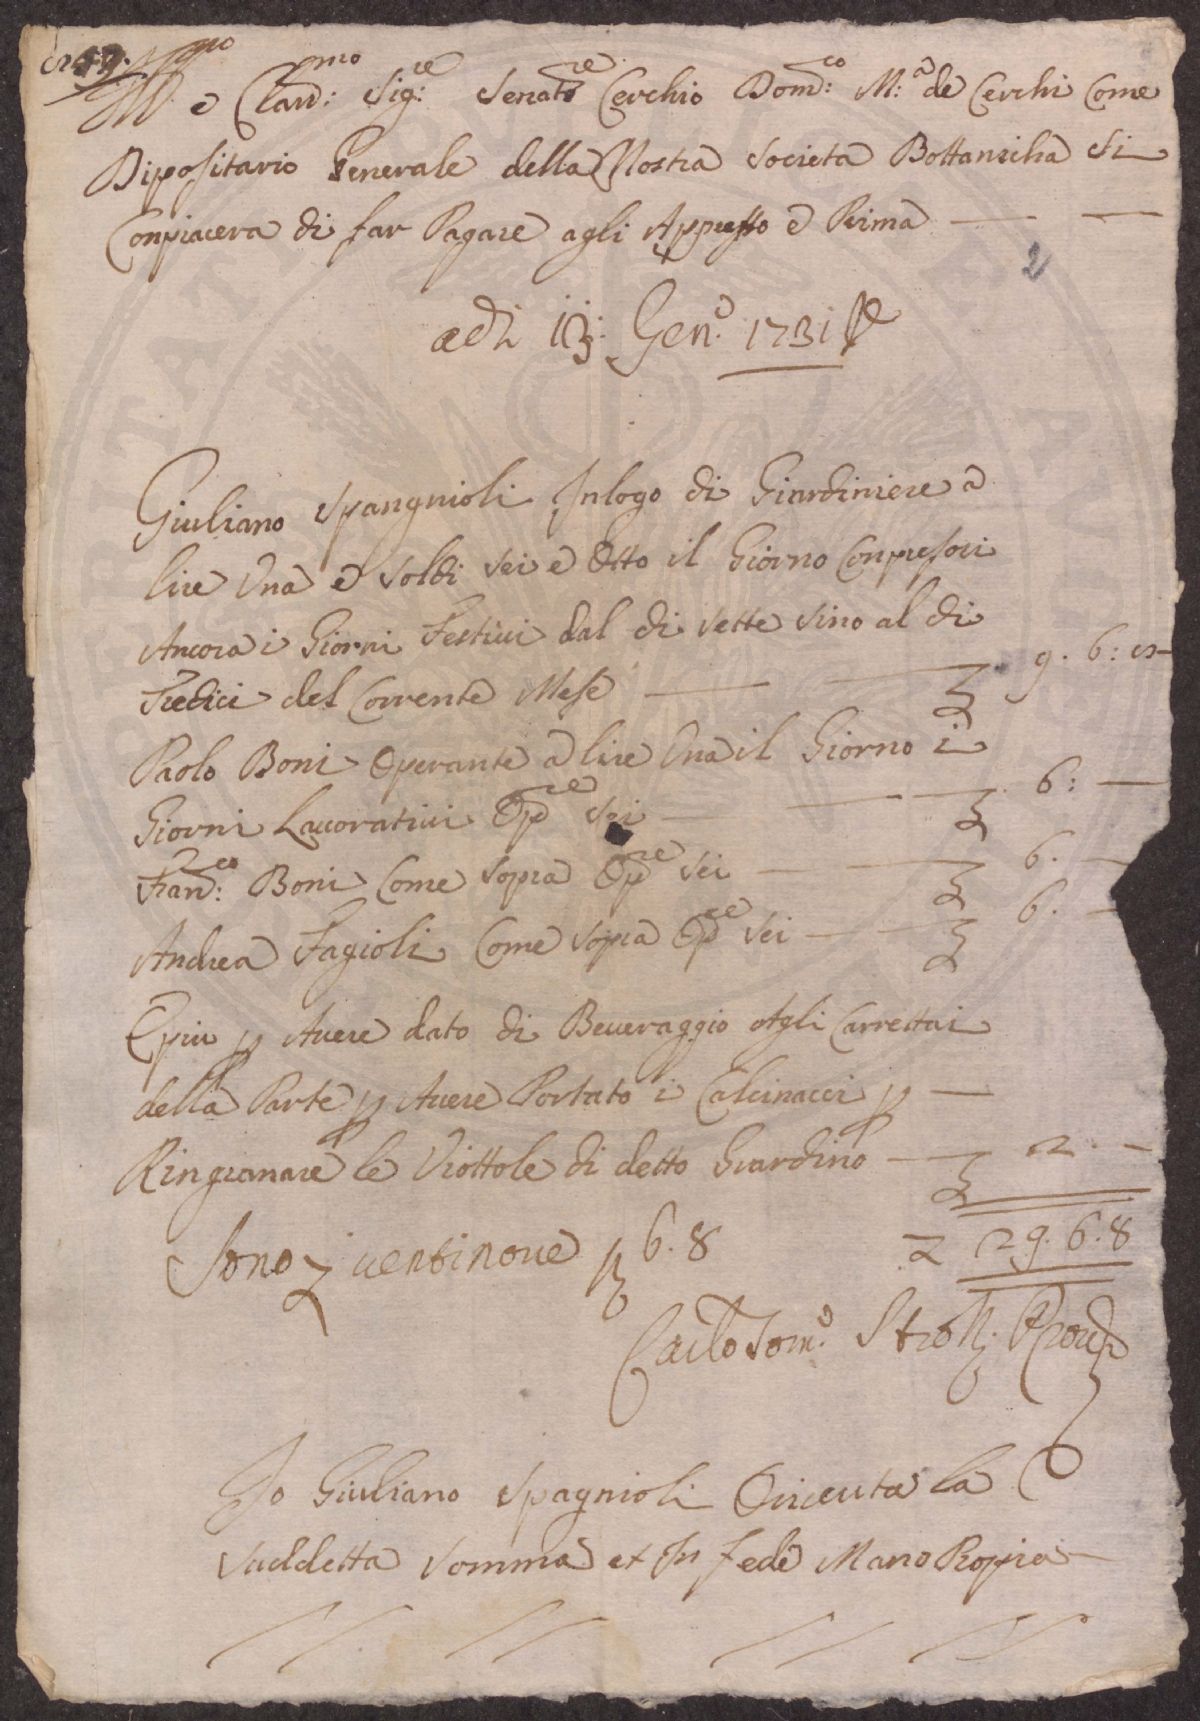 Ill.mo e Clar:mo Sig:re Senat:re Cerchio Dom:co M:a de Cerchi Come
Dipositario Generale della Nostra Societa Bottanicha Si
Conpiacera di far Pagare agli Appresso e Prima
2
adi 13: Gen:o 1731
Giuliano Spangnioli Inlogo di Giardiniere a
lire Una e Soldi Sei e Otto il Giorno Conpresoci
Ancora i Giorni Festivi dal di Sette Sino al di
Tredici del Corrente Mese 9. 6: 8
Paolo Boni Operante a lire Una il Giorno i
Giorni Lavorativi Op:re Sei 6:
Fran:co Boni Come Sopra Op:re Sei 6.
Andrea Fagioli Come Sopra Op:re Sei 6.
E piu p Avere dato di Beveraggio Agli Carrettai
della Parte p Avere Portato i Calcinacci p
Ringranare le Viottole di detto Giardino 2
Sono ventinove 6. 8 29. 6. 8
Carlo Tom:o Strozzi Prov:re
Io Giuliano Spagnioli O riceuta la
Suddetta Somma et In fede Mano Propia